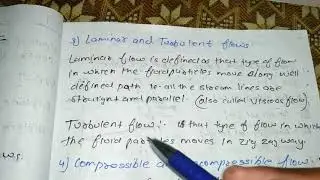 3) Laminar and Turbulent flows:
Laminar flow is defined as that type of flow
in which the fluid particles move along well
defined path & all the stream lines are
straight and parallel. (also called viscous flow)
Turbulent flow:- is that type of flow in which
the fluid particles moves in zig zag way.
4) Compressible and incompressible flow:
w.s.